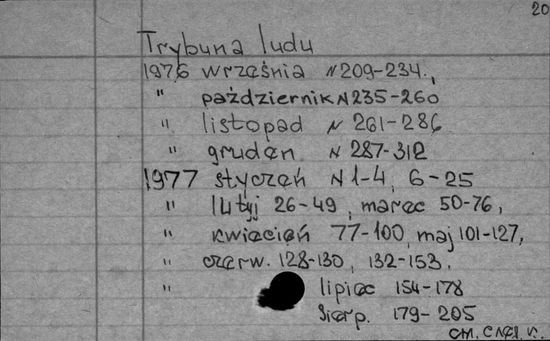 20
Trybuna ludu
1976 września N 209-234.,
" październik N 235-260
" listopad N 261-286
" grudən N 287-312
1977 styczeń N 1-4, 6-25
" lutyj 26-49, marec 50-76,
" kwiecień 77-100, maj 101-127,
" czerw. 128-130, 132-153.
" lipiec 154-178
Sierp. 179-205
см. след. к.